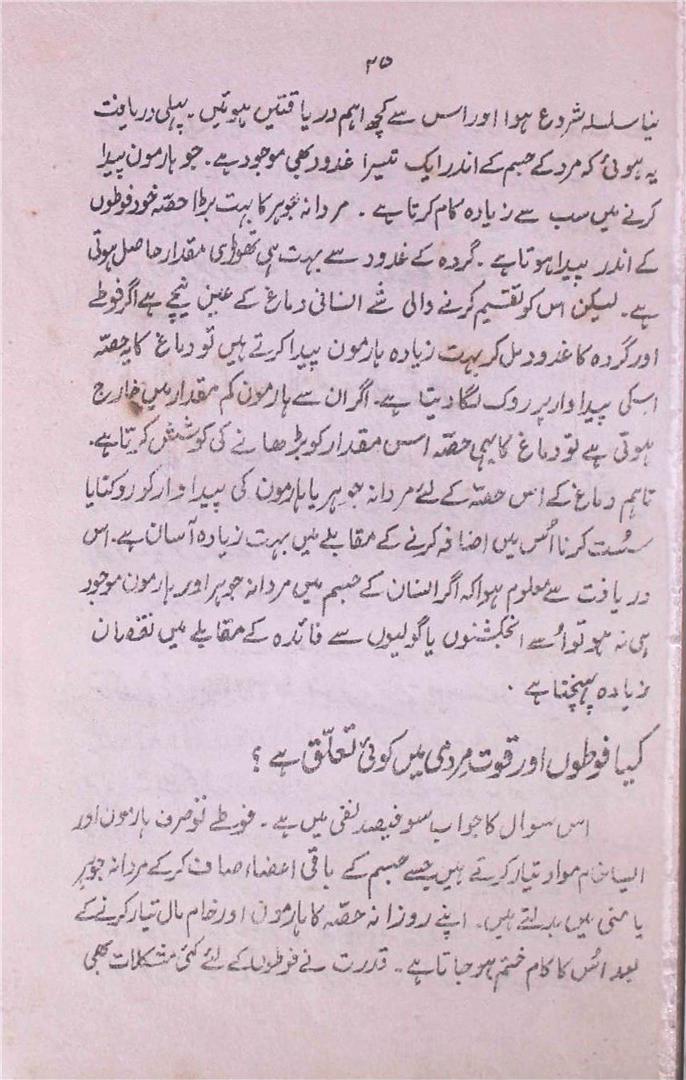 ۲۵
نیا سلسلہ شروع ہوا اور اس سے کچھ اہم دریافتیں ہوئیں۔ پہلی دریافت
یہ ہوئی کہ مرد کے جسم کے اندر ایک تیسرا غدود بھی موجود ہے۔ جو ہارمون پیدا
کرنے میں سب سے زیادہ کام کرتا ہے۔ مردانہ جوہر کا بہت بڑا حصّہ خود فوطوں
کے اندر پیدا ہوتا ہے۔ گردہ کے غدود سے بہت ہی تھوڑی مقدار حاصل ہوتی
ہے۔ لیکن اس کو تقسیم کرنے والی شے انسانی دماغ کے عین نیچے ہے اگر فوطے
اور گردہ کا غدود مل کر بہت زیادہ ہارمون پیدا کرتے ہیں تو دماغ کا یہ حصّہ
اسکی پیداوار پر روک لگا دیتا ہے۔ اگر ان سے ہارمون کم مقدار میں خارج
ہوتی ہے تو دماغ کا یہی حصّہ اس مقدار کو بڑھانے کی کوشش کرتا ہے۔
تاہم دماغ کے اس حصّہ کے لئے مردانہ جوہر یا ہارمون کی پیداوار کو روکنا یا
سُست کرنا اُس میں اضافہ کرنے کے مقابلے میں بہت زیادہ آسان ہے۔ اس
دریافت سے معلوم ہوا کہ اگر انسان کے جسم میں مردانہ جوہر اور ہارمون موجود
ہی نہ ہو تو اُسے انجکشنوں یا گولیوں سے فائدہ کے مقابلے میں نقصان
زیادہ پہنچتا ہے۔
کیا فوطوں اور قوت مردمی میں کوئی تعلّق ہے؟
اس سوال کا جواب سو فیصد نفی میں ہے۔ فوطے تو صرف ہارمون اور
ایسا خام مواد تیار کرتے ہیں جسے جسم کے باقی اعضاء صاف کر کے مردانہ جوہر
یا منی میں بدلتے ہیں۔ اپنے روزانہ حصّہ کا ہارمون اور خام مال تیار کرنے کے
بعد اُس کا کام ختم ہو جاتا ہے۔ قدرت نے فوطوں کے لئے کئی مشکلات بھی